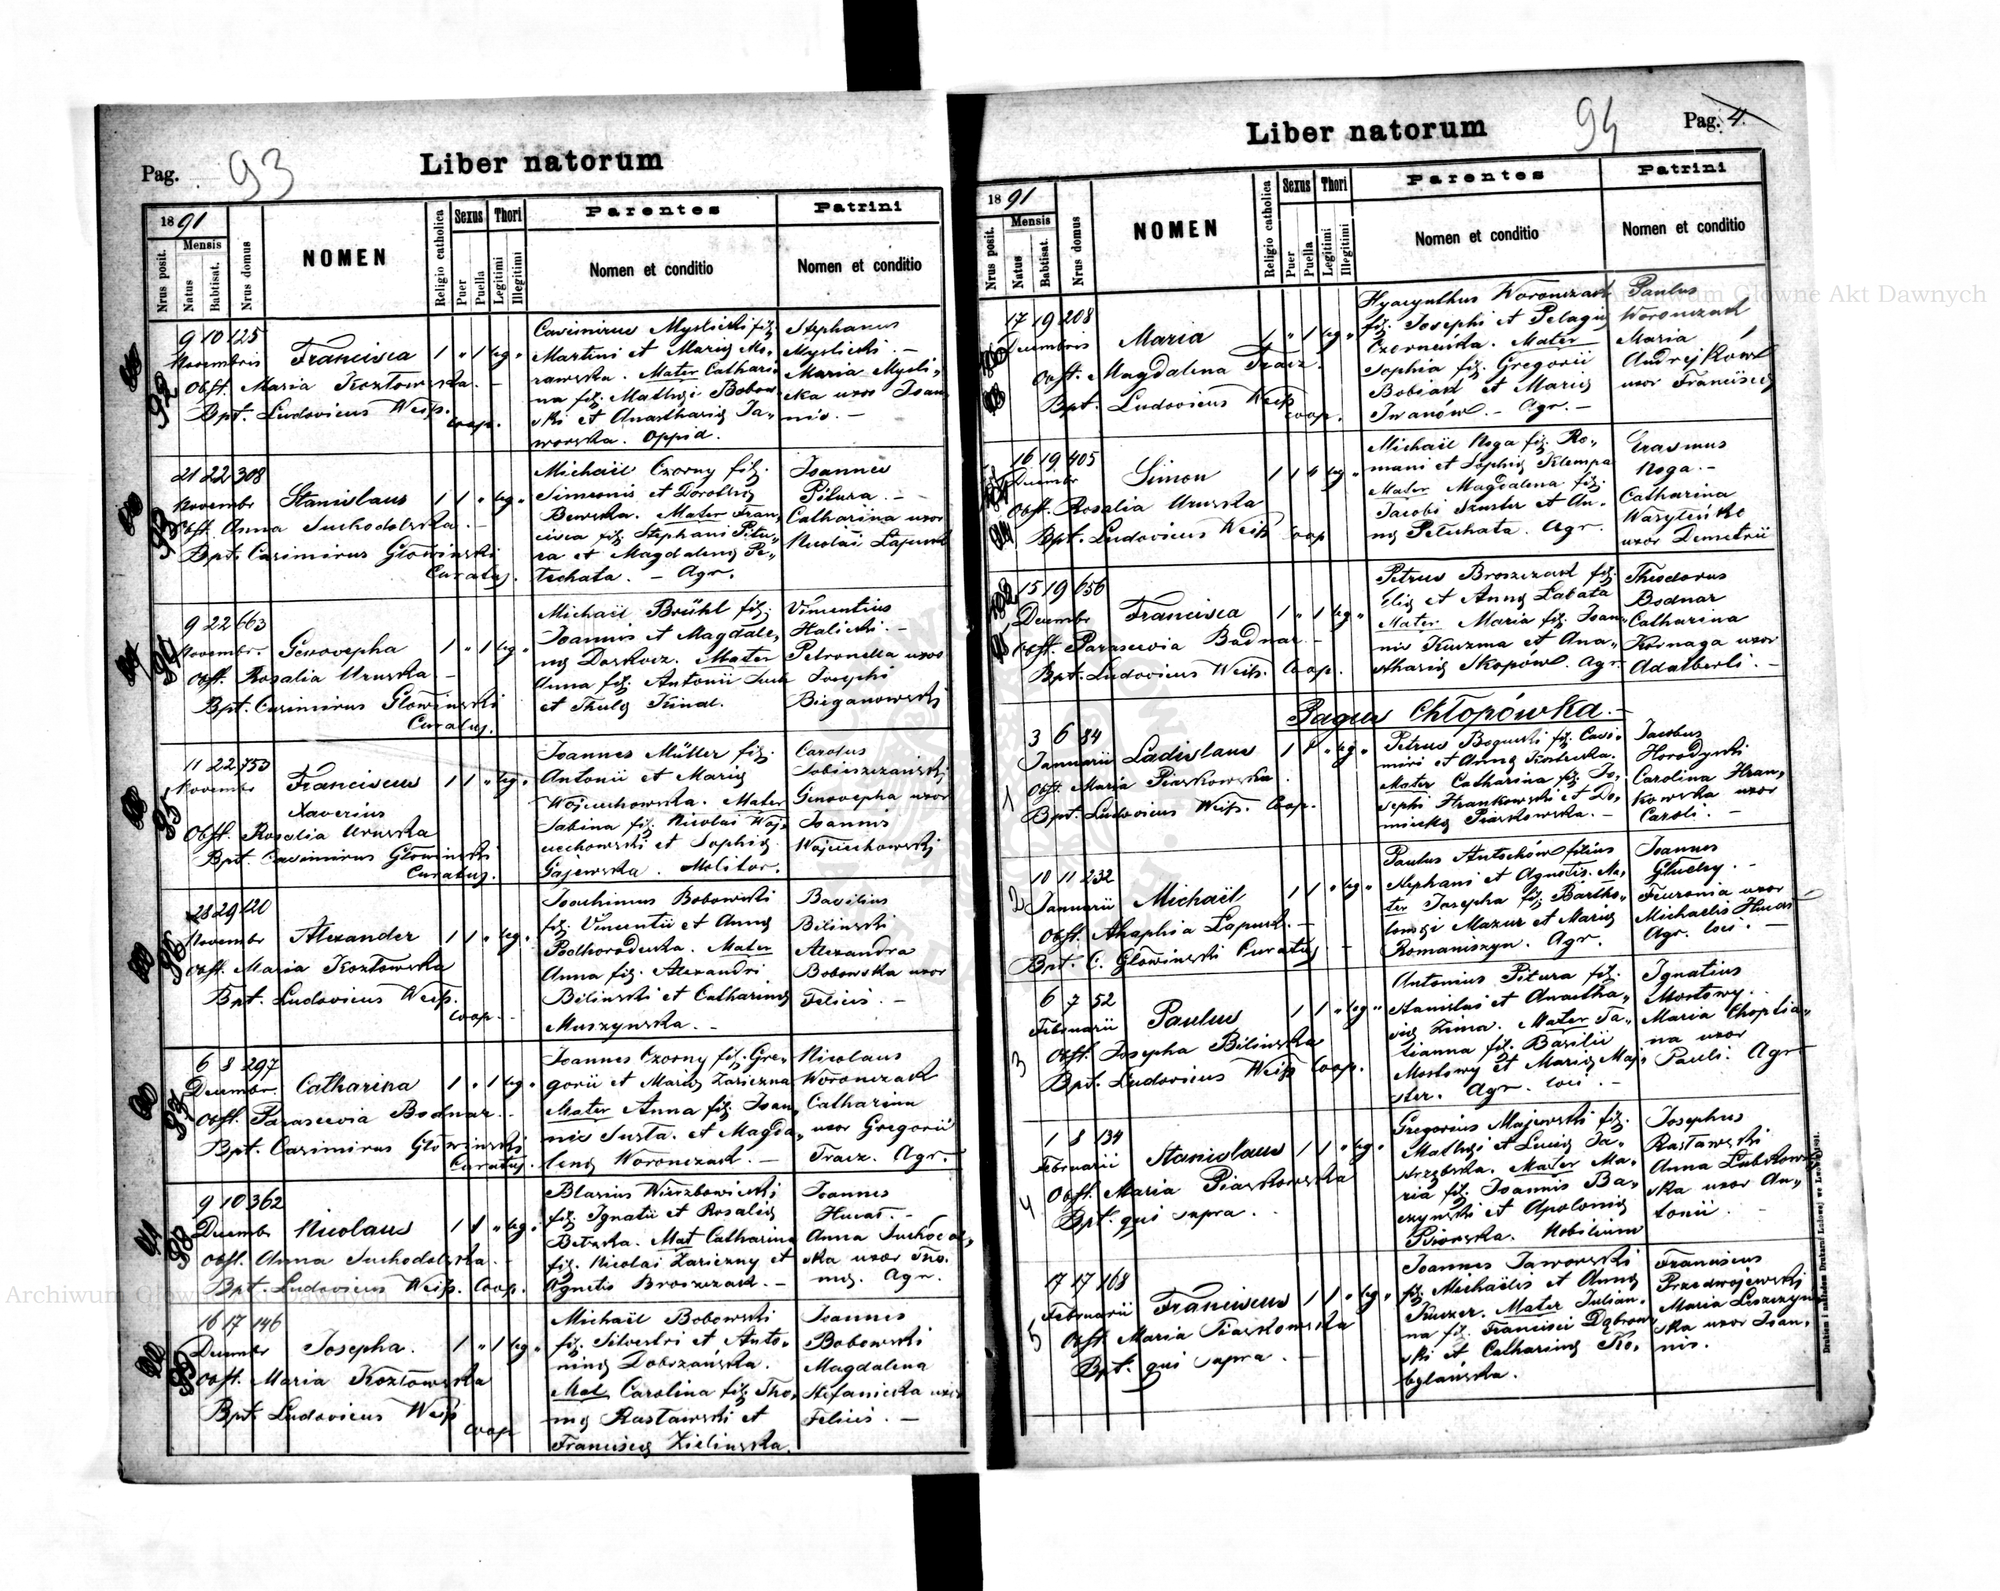 Pag. 93
Liber natorum
1891
Nrus posit.
Mensis
Natus
Babtisat.
Nrus domus
NOMEN
Religio catholica
Sexus
Puer
Puella
Thori
Legitimi
Illegitimi
Parentes
Nomen et conditio
Patrini
Nomen et conditio
9 10 125
Novembris Francisca 1 " 1 leg "
Obst. Maria Kozłowska.
Bpt. Ludovicus Weiss.
Coop.
Casimirus Myslicki fil.
Martini et Mariae Mo-
rawska. Mater Cathari-
na fil. Mathaei Bobow-
ski et Anasthasiae Ja-
worska. Oppid.
Stephanus
Myslicki. —
Maria Mysli-
cka uxor Joan-
nis. —
21 22 308
Novembr Stanislaus 1 1 " leg "
Obst. Anna Suchodolska. —
Bpt. Casimirus Głowinski
Curatus.
Michaël Czorny fil.
Simeonis et Dorotheae
Mater Fran-
cisca fil. Stephani Pitu-
ra et Magdalenae Pe-
tschata. — Agr.
Joannes
Pitura. —
Catharina uxor
Nicolai Lapusk
9 22 663
Novembr. Genovepha 1 " 1 leg "
Obst. Rosalia Uruska. —
Bpt. Casimirus Głowinski
Curatus.
Michaël Brühl fil.
Joannis et Magdale-
nae Mater
Anna fil. Antonii
et Theclae Kinal.
Vincentius
Halicki. —
Petronella uxor
Josephi
Bieganowski
11 22 753
Novembr Franciscus 1 1 " leg "
Xaverius
Obst. Rosalia Uruska
Bpt. Casimirus Głowinski
Curatus.
Joannes Müller fil.
Antonii et Mariae
Wojciechowska. Mater
Sabina fil. Nicolai Woj-
ciechowski et Sophiae
Gajewska. Molitor.
Carolus
Sobieszczański
Genovepha uxor
Joannis
Wojciechowski
28 29 120
Novembr Alexander 1 1 " leg "
Obst. Maria Kozłowska
Bpt. Ludovicus Weiss.
Coop.
Joachimus Bobowski
fil. Vincentii et Annae
Podhorodecka. Mater
Anna fil. Alexandri
Bilinski et Catharinae
Muszynska. —
Basilius
Bilinski
Alexandra
Bobowska uxor
Felicis. —
6 8 297
Decembr. Catharina 1 " 1 leg "
Obst. Parascevia Bodnar. —
Bpt. Casimirus Głowinski
Curatus.
Joannes Czorny fil. Gre-
gorii et Mariae Zariczna
Mater Anna fil. Joan-
nis Susta. et Magda-
lenae Woronczak. —
Nicolaus
Woronczak
Catharina
uxor Gregorii
Tracz. Agr.
9 10 362
Decembr Nicolaus 1 1 " leg "
Obst. Anna Suchodolska. —
Bpt. Ludovicus Weiss. Coop.
Blasius Wierzbowiecki
fil. Ignatii et Rosaliae
Mat Catharina
fil. Nicolai Zariczny et
Agnetis Broszczak. —
Joannes
Hucał. —
Anna Suchodol-
ska uxor Tho-
mae. Agr.
16 17 146
Decembr Josepha. 1 " 1 leg "
Obst. Maria Kozłowska
Bpt. Ludovicus Weiss
Coop
Michaël Bobowski
fil. Silvestri et Anto-
ninae Dobrzańska.
Mat Carolina fil. Tho-
mae Rasławski et
Franciscae Zielinska.
Joannes
Bobowski
Magdalena
Stefanicka uxor
Felicis. —
94 Pag. 4.
Liber natorum
1891
Nrus posit.
Mensis
Natus
Babtisat.
Nrus domus
NOMEN
Religio catholica
Sexus
Puer
Puella
Thori
Legitimi
Illegitimi
Parentes
Nomen et conditio
Patrini
Nomen et conditio
17 19 208
Decembris Maria 1 " 1 leg "
Obst. Magdalena Tracz.
Bpt. Ludovicus Weiss
Coop.
Hyacynthus Woronczak
fil. Josephi et Pelagiae
Mater
Sophia fil. Gregorii
Bobiak et Mariae
Iwanów. — Agr. —
Paulus
Woronczak
Maria
Andrijków
uxor Francisci
16 19 405
Decembr Simon 1 1 " leg "
Obst. Rosalia Uruska
Bpt. Ludovicus Weiss Coop
Michaël Noga fil. Ro-
mani et Sophiae Klempa
Mater Magdalena fil.
Jacobi Szuster et An-
nae Petschata. Agr.
Erasmus
Noga. —
Catharina
Wasyleńko
uxor Demetrii
15 19 656
Decembr Francisca 1 " 1 leg "
Obst. Parascevia Bodnar. —
Bpt. Ludovicus Weiss. Coop.
Petrus Broszczak fil.
Eliae et Annae Labata
Mater Maria fil. Joan-
nis Kuzma et Ana-
sthasiae Skopów. Agr.
Theodorus
Bodnar
Catharina
Kornaga uxor
Adalberti. —
Pagus Chłopówka. —
1
3 6 84
Januarii Ladislaus 1 1 " leg "
Obst. Maria Piaskowska
Bpt. Ludovicus Weiss. Coop.
Petrus Bogucki fil. Casi-
miri et Annae
Mater Catharina fil. Jo-
sephi Hrankowski et Do-
minicae Piaskowska. —
Jacobus
Horodyski
Carolina Hran-
kowska uxor
Caroli. —
2
10 11 232
Januarii Michaël 1 1 " leg "
Obst. Ahaphia Lapusk. —
Bpt. C. Głowinski Curatus —
Paulus Antschów filius
Stephani et Agnetis. Ma-
ter Josepha fil. Bartho-
lomaei Mazur et Mariae
Romaniszyn. Agr.
Joannes
Głuchy. —
Fewronia uxor
Michaelis Hucał
Agr. loci. —
3
6 7 52
Februarii Paulus 1 1 " leg "
Obst. Josepha Bilinska
Bpt. Ludovicus Weiss Coop.
Antonius Pitura fil.
Stanislai et Anastha-
siae Zima. Mater Ta-
tianna fil. Basilii
Mostowy et Mariae Maj-
ster. Agr. loci. —
Ignatius
Mostowy. .
Maria Choptia-
na uxor
Pauli. Agr
4
1 8 134
Februarii Stanislaus 1 1 " leg "
Obst. Maria Piaskowska
Bpt. qui supra. .
Gregorius Majewski fil.
Mathaei et Luciae Ja-
strzębska. Mater Ma-
ria fil. Joannis Ba-
czynski et Apoloniae
Nobilium
Josephus
Rasławski
Anna Lubkow-
ska uxor An-
tonii. —
5
17 17 168
Februarii Franciscus 1 1 " leg "
Obst Maria Piaskowska
Bpt. qui supra. —
Joannes Jaworski
fil. Michaëlis et Annae
Mater Julian-
na fil. Francisci Dąbrow-
ski et Catharinae Ko-
bylańska.
Franciscus
Przedwojewski
Maria Leszczyn-
ska uxor Joan-
nis.
Drukiem i nakładem Drukarni Ludowej we Lwowie
Archiwum Główne Akt Dawnych
Archiwum Główne Akt Dawnych